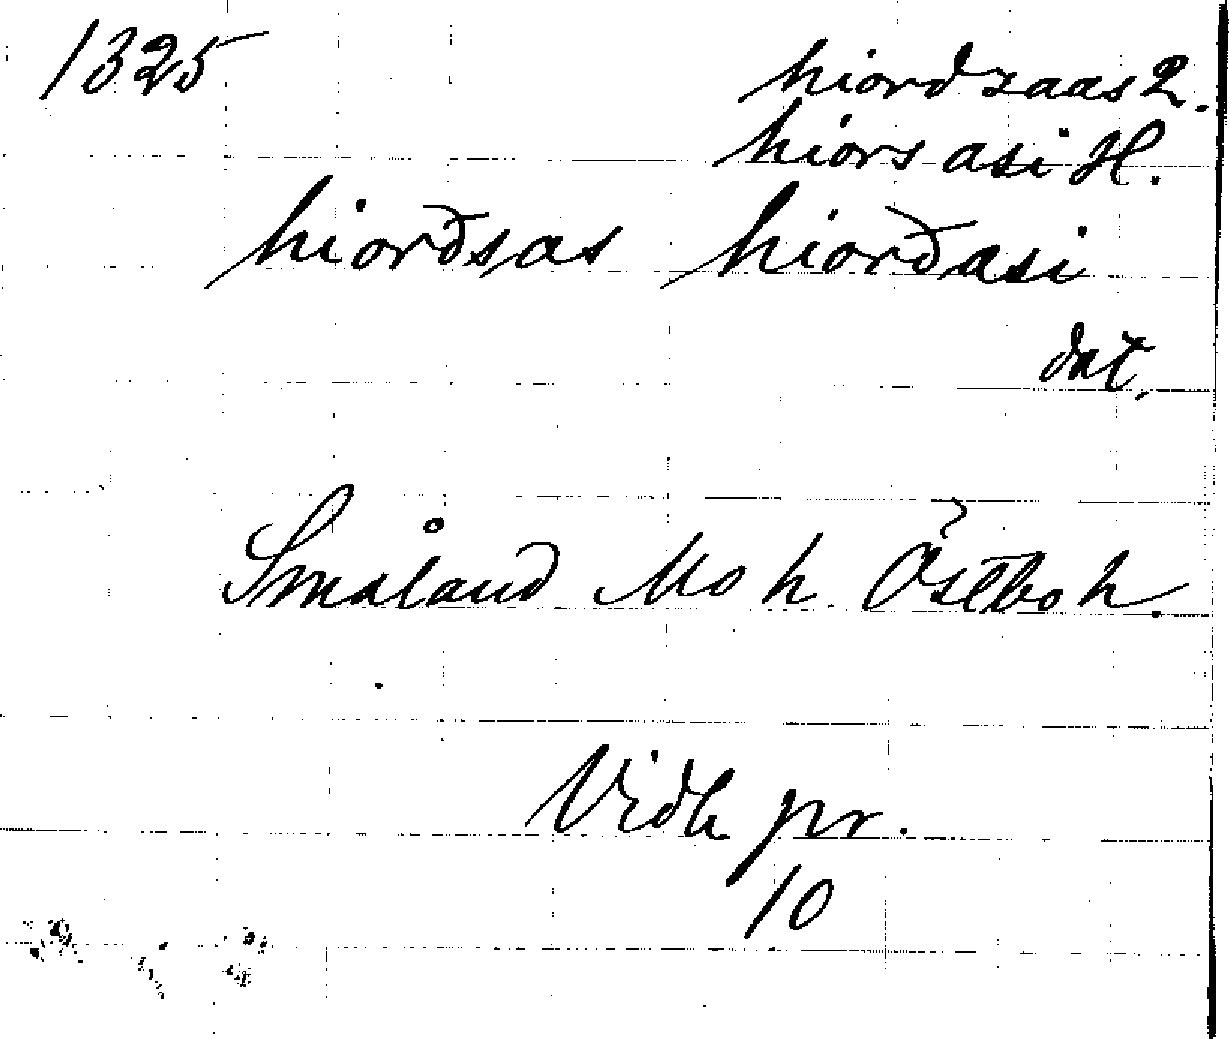 1325
hiordzaas 2.
hiors asi H.
hiorðsas hiorðasi
dat.
Småland Mo h. Östbo h.
Vidh pr.
10